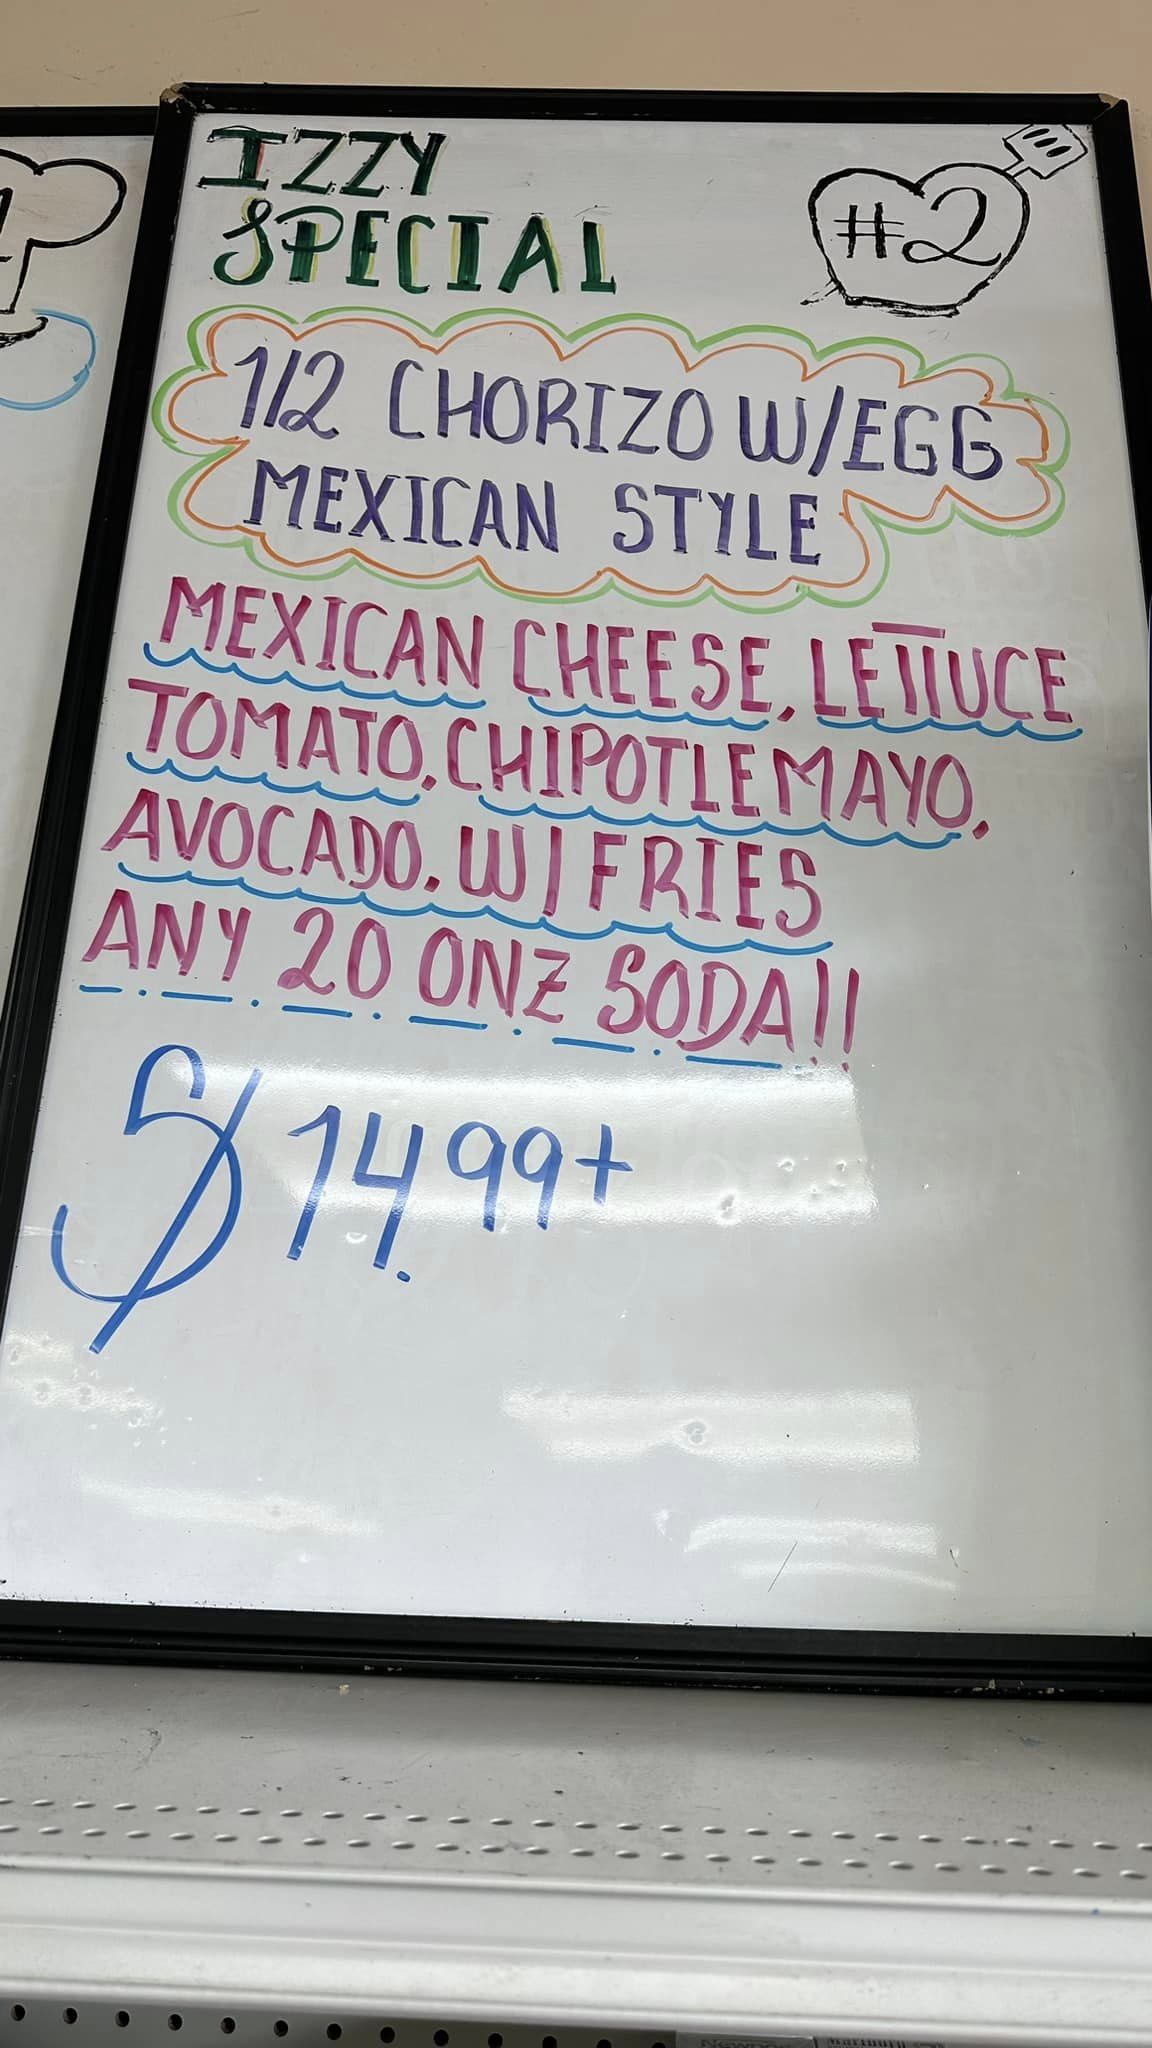 IZZY
SPECIAL
#2
1/2 CHORIZO W/EGG
MEXICAN STYLE
MEXICAN CHEESE, LETTUCE
TOMATO, CHIPOTLE MAYO,
AVOCADO. W/FRIES
ANY 20 ONZ SODA!!
$14.99+